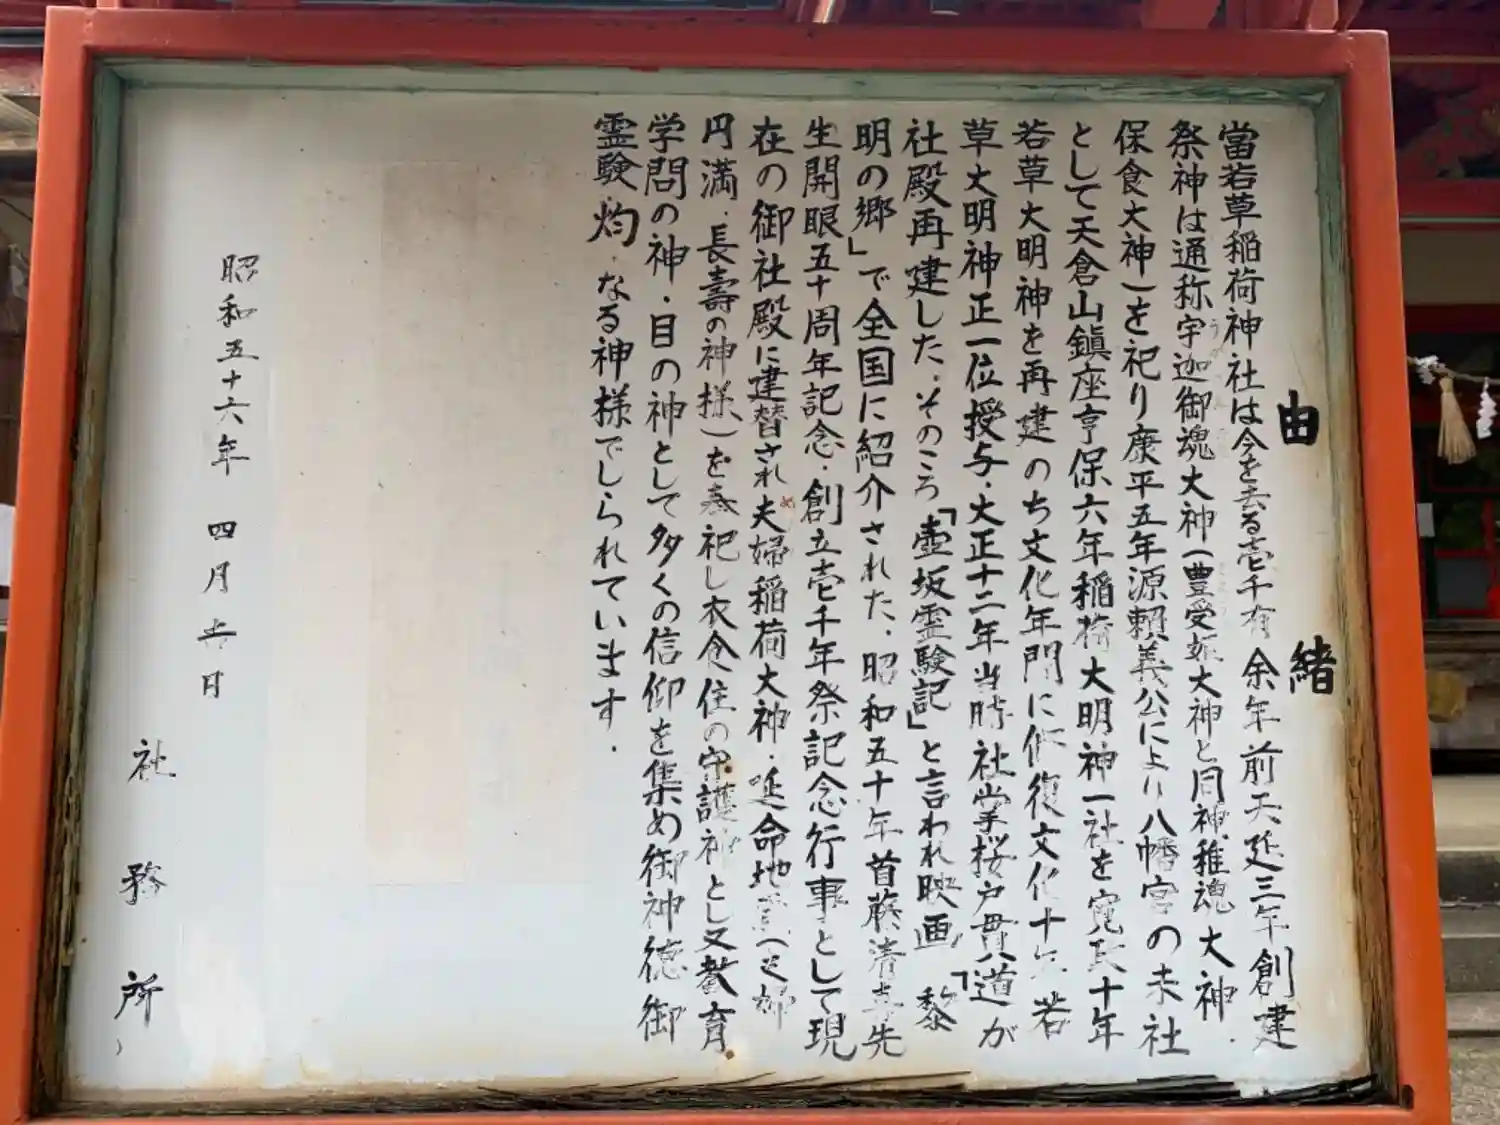 由緒
當若草稲荷神社は今を去る壱千有余年前天延三年創建
祭神は通称宇迦御魂大神(豊受姫大神と同神稚魂大神・
保食大神)を祀り康平五年源頼義公により八幡宮の末社
として天倉山鎮座亨保六年稲荷大明神一社を寛政十年
若草大明神を再建のち文化年間に修復文化十年若
草大明神正一位授与・大正十二年当時社掌桜戸貫道が
社殿再建した・そのころ「壺坂霊験記」と言われ映画「黎
明の郷」で全国に紹介された・昭和五十年首藤清 先
生開眼五十周年記念・創立壱千年祭記念行事として現
在の御社殿に建替され夫婦稲荷大神・延命地蔵(夫婦
円満・長壽の神様)を奉祀し衣食住の守護神とし又教育
学問の神・目の神として多くの信仰を集め御神徳御
霊験灼なる神様でしられています・
昭和五十六年 四月 日
社務所